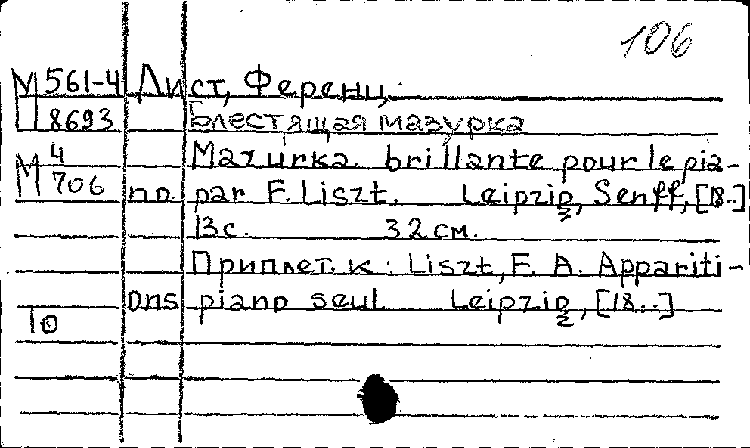 106
М 561-4 Лист, Ференц.
8693 Блестящая мазурка
М 4 Mazurka brillante pour le pia-
706 no par F. Liszt. Leipzig, Senff, [18..]
13 с. 32 см.
Приплет. к: Liszt, F. A. Appariti-
ons piano seul Leipzig, [18...]
То